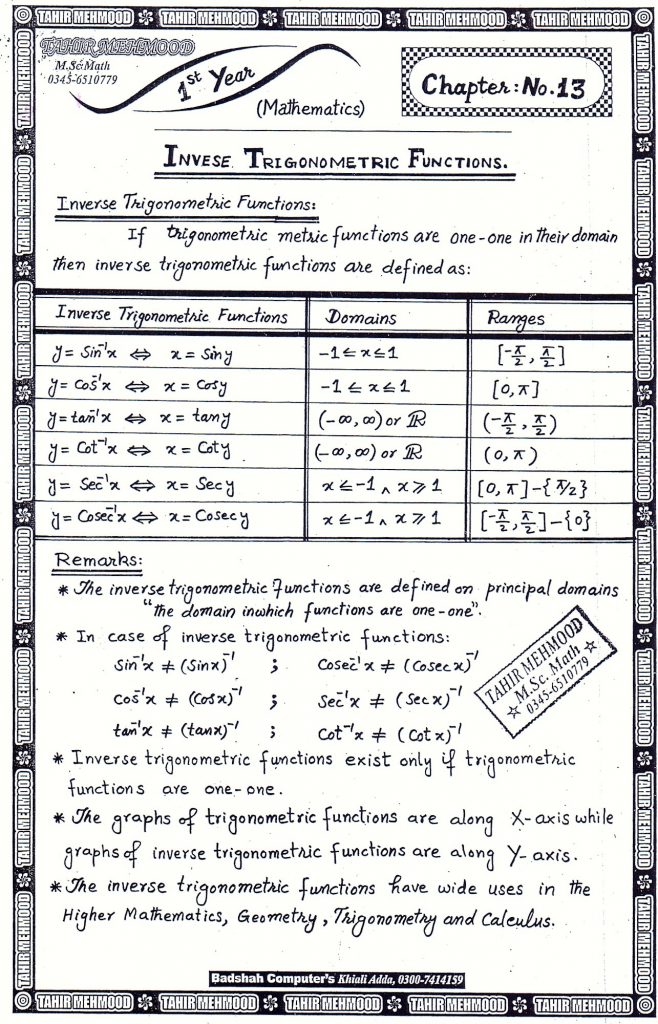 TAHIR MEHMOOD TAHIR MEHMOOD TAHIR MEHMOOD TAHIR MEHMOOD TAHIR MEHMOOD
TAHIR MEHMOOD
M.Sc Math
0345-6510779
1st Year
(Mathematics)
Chapter: No. 13
INVESE TRIGONOMETRIC FUNCTIONS.
Inverse Trigonometric Functions:
If trigonometric metric functions are one-one in their domain
then inverse trigonometric functions are defined as:
Inverse Trigonometric Functions Domains Ranges
y = Sin⁻¹x ⇔ x = Sin y -1 ≤ x ≤ 1 [-π/2, π/2]
y = Cos⁻¹x ⇔ x = Cos y -1 ≤ x ≤ 1 [0, π]
y = tan⁻¹x ⇔ x = tan y (-∞, ∞) or ℝ (-π/2, π/2)
y = Cot⁻¹x ⇔ x = Cot y (-∞, ∞) or ℝ (0, π)
y = Sec⁻¹x ⇔ x = Sec y x ≤ -1 ∧ x ≥ 1 [0, π] - {π/2}
y = Cosec⁻¹x ⇔ x = Cosec y x ≤ -1 ∧ x ≥ 1 [-π/2, π/2] - {0}
Remarks:
* The inverse trigonometric functions are defined on principal domains
"the domain inwhich functions are one-one".
* In case of inverse trigonometric functions:
Sin⁻¹x ≠ (Sinx)⁻¹ ; Cosec⁻¹x ≠ (Cosec x)⁻¹
Cos⁻¹x ≠ (Cosx)⁻¹ ; Sec⁻¹x ≠ (Sec x)⁻¹
tan⁻¹x ≠ (tanx)⁻¹ ; Cot⁻¹x ≠ (Cot x)⁻¹
TAHIR MEHMOOD
M.Sc. Math
0345-6510779
* Inverse trigonometric functions exist only if trigonometric
functions are one-one.
* The graphs of trigonometric functions are along X-axis while
graphs of inverse trigonometric functions are along Y-axis.
* The inverse trigonometric functions have wide uses in the
Higher Mathematics, Geometry, Trigonometry and Calculus.
Badshah Computer's Khiali Adda, 0300-7414159
TAHIR MEHMOOD TAHIR MEHMOOD TAHIR MEHMOOD TAHIR MEHMOOD TAHIR MEHMOOD